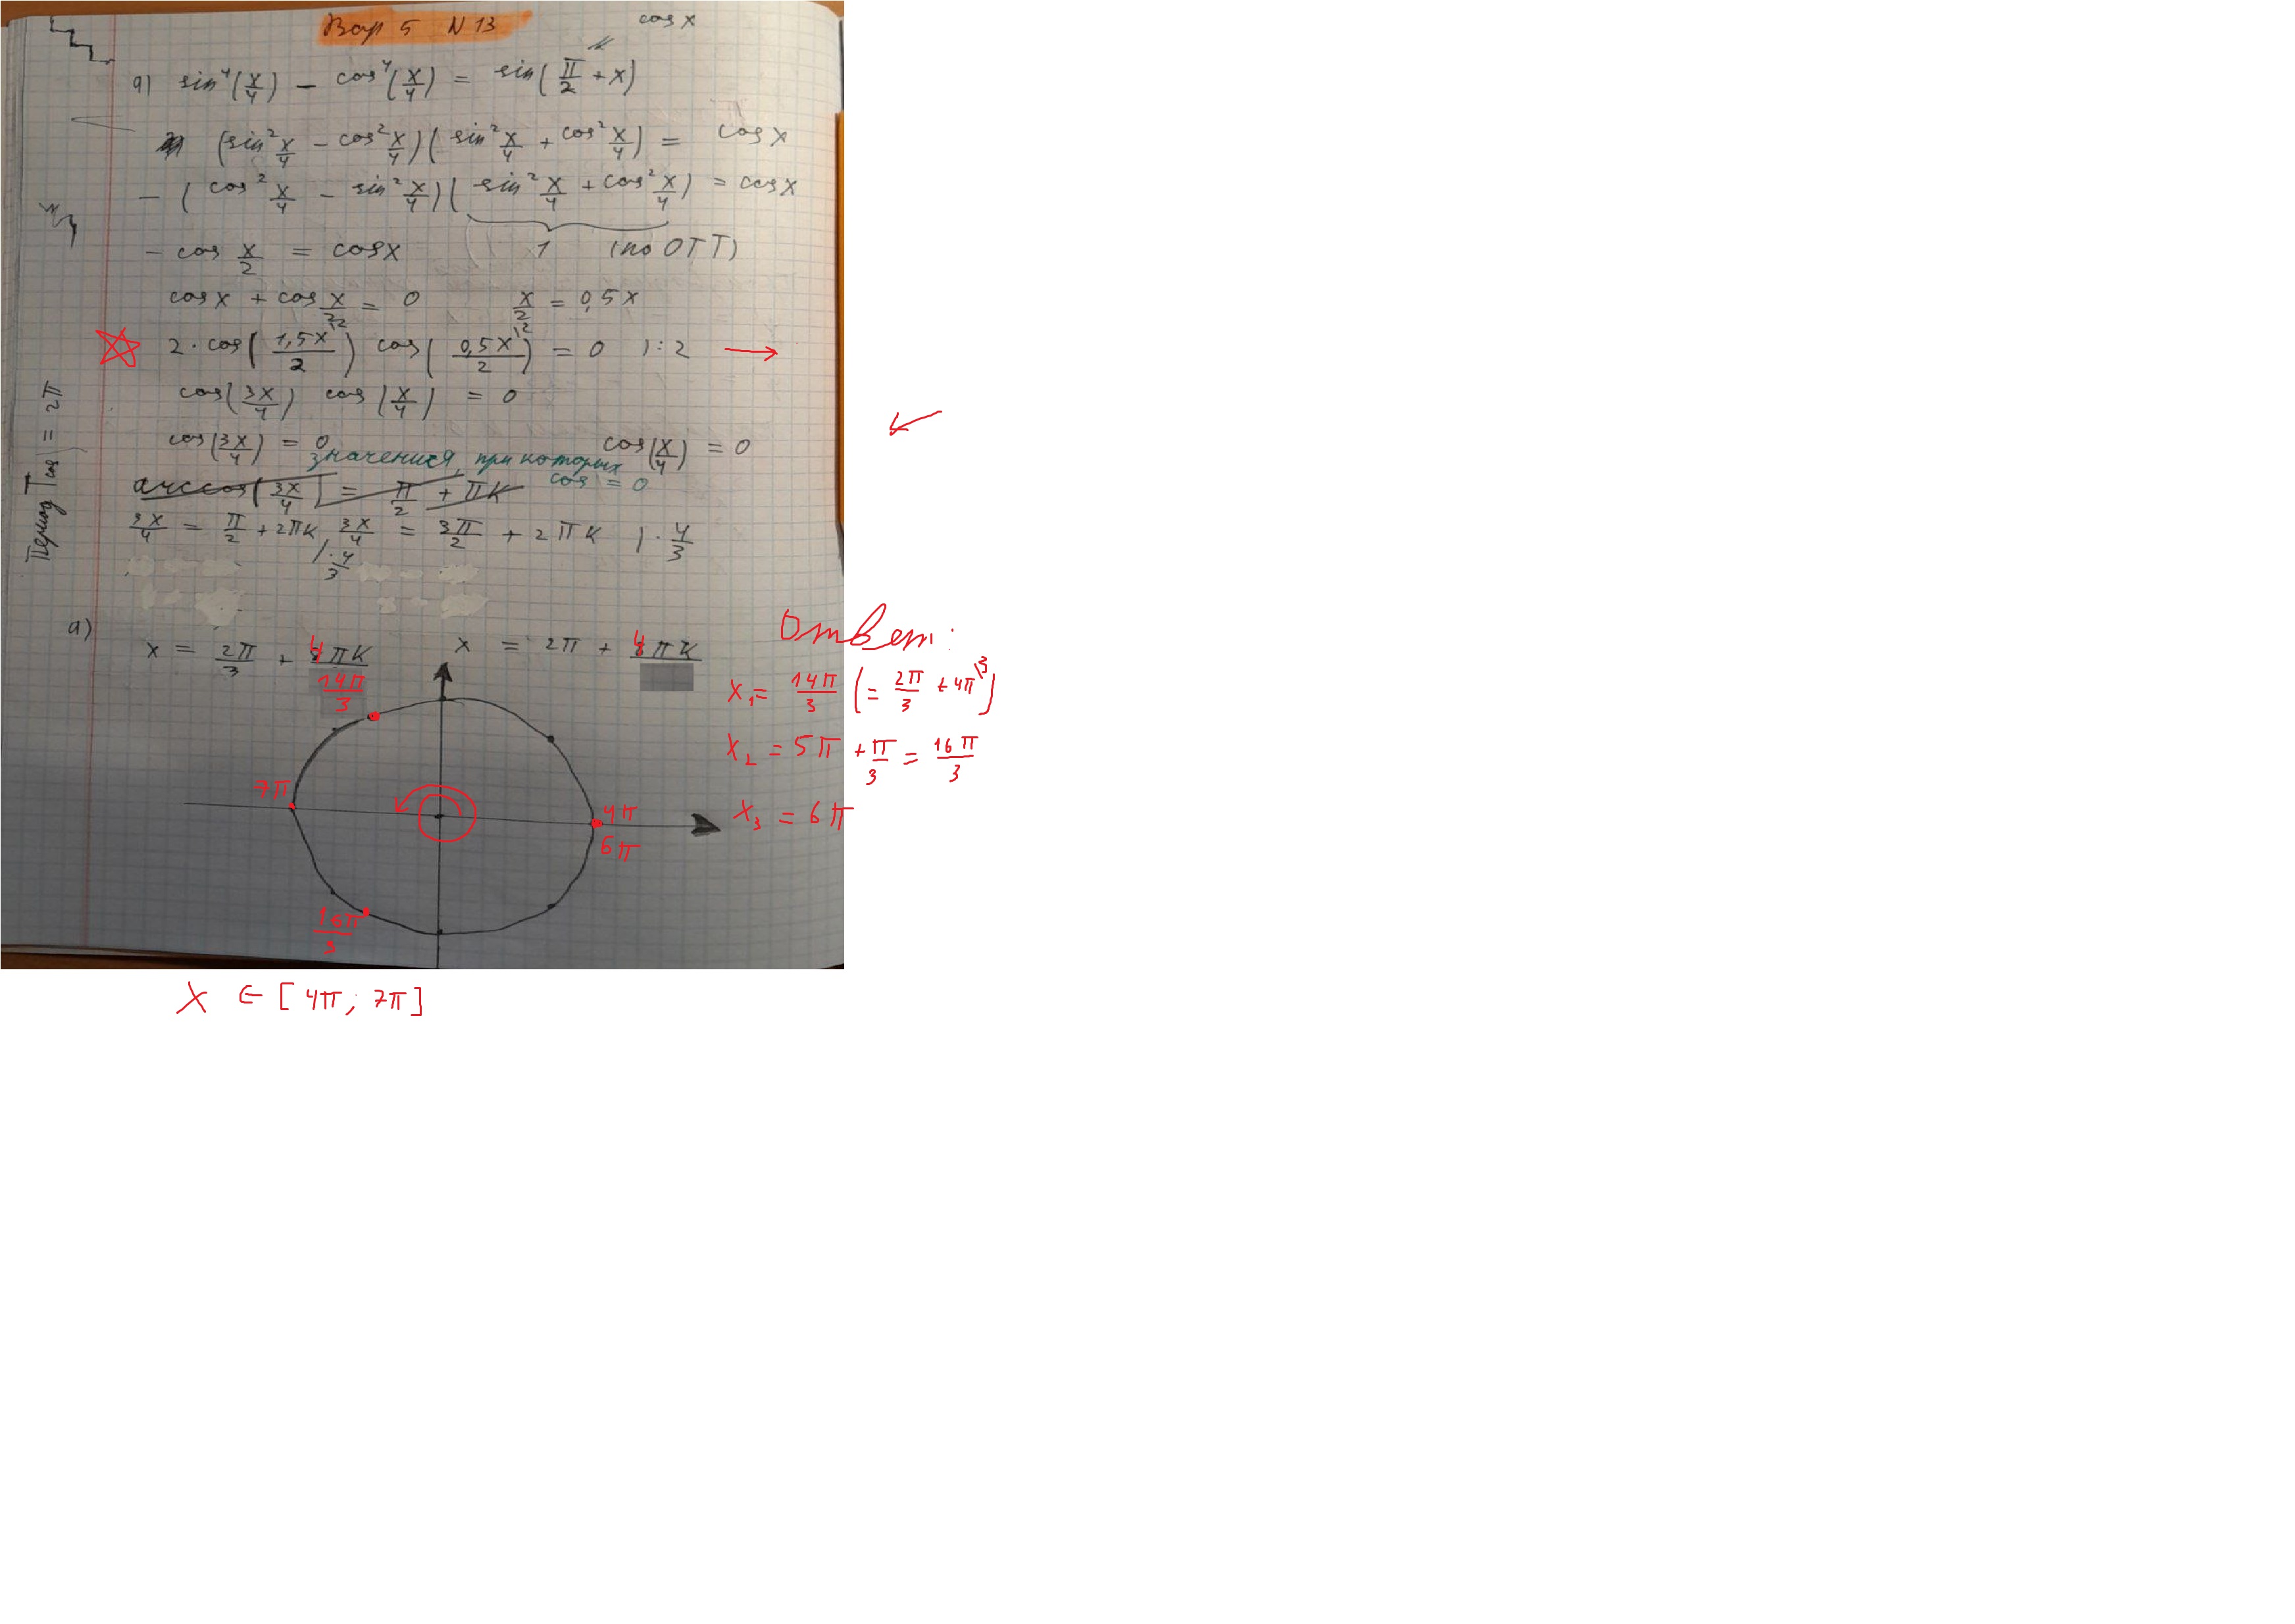 Вар 5 N 13
cos x
а) sin⁴(x/4) − cos⁴(x/4) = sin(π/2 + x)
(sin² x/4 − cos² x/4)(sin² x/4 + cos² x/4) = cos x
− (cos² x/4 − sin² x/4)(sin² x/4 + cos² x/4) = cos x
− cos x/2 = cos x 1 (по ОТТ)
cos x + cos x/2 = 0 x/2 = 0,5x
2 · cos(1,5x\2 / 2) cos(0,5x\2 / 2) = 0 |:2
cos(3x/4) cos(x/4) = 0
cos(3x/4) = 0 cos(x/4) = 0
значения, при которых cos = 0
arccos(3x/4) = π/2 + πk
3x/4 = π/2 + 2πk |·4/3 3x/4 = 3π/2 + 2πk |·4/3
Период Tcos = 2π
а)
x = 2π/3 + 4πk/ x = 2π + 4πk/
14π/3
7π
4π
6π
16π/3
Ответ:
x₁ = 14π/3 (= 2π/3 + 4π\3)
x₂ = 5π + π/3 = 16π/3
x₃ = 6π
x ∈ [4π; 7π]